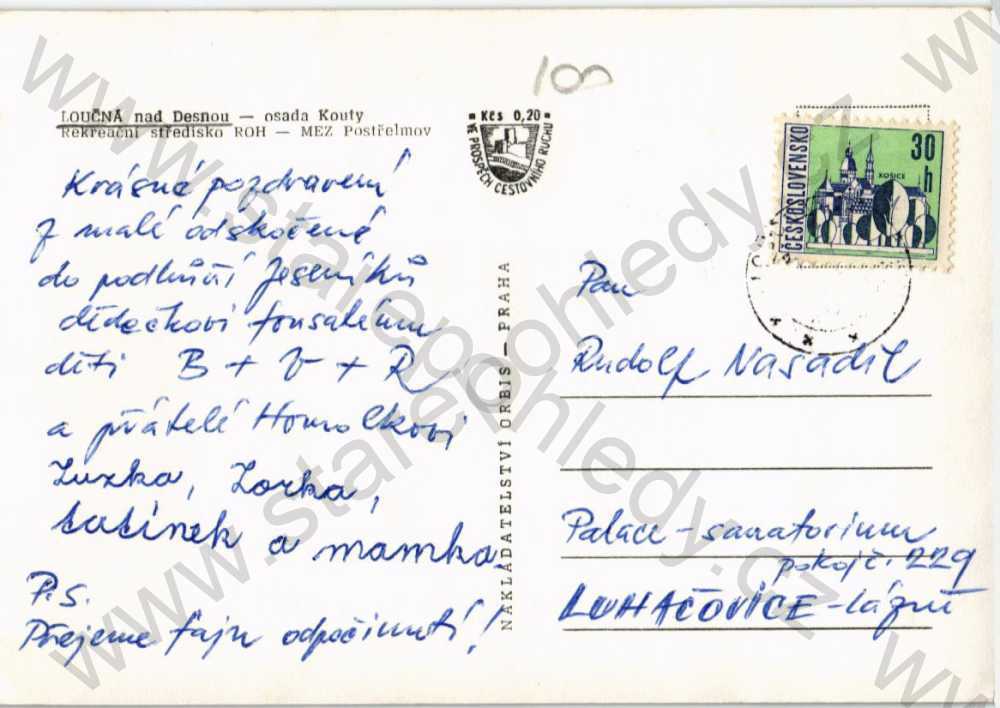 18
LOUČNÁ nad Desnou — osada Kouty
Rekreační středisko ROH — MEZ Postřelmov
Kčs 0,20
VE PROSPĚCH CESTOVNÍHO RUCHU
ČESKOSLOVENSKO
30 h
KOŠICE
Krásné pozdravení
z malé odskočené
do podhůří Jeseníků
dědečkovi
děti B + V + R
a přátelé Homolkovi
Zuzka, Zorka,
tatínek a mamka
P.S.
Přejeme fajn odpočinutí!
NAKLADATELSTVÍ ORBIS — PRAHA
Pan
Rudolf Nasadil
Palace - sanatorium
pokoj č. 229
LUHAČOVICE - lázně
www.starepohledy.cz
www.starepohledy.cz